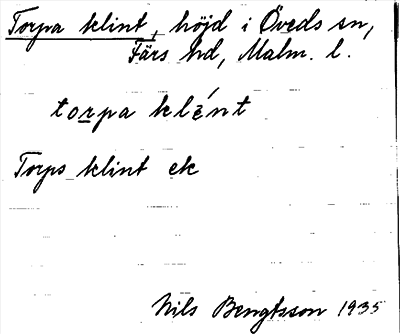 Torpa klint, höjd i Öveds sn,
Färs hd, Malm. l.
torpa klént
Torps klint ek
Nils Bengtsson 1935